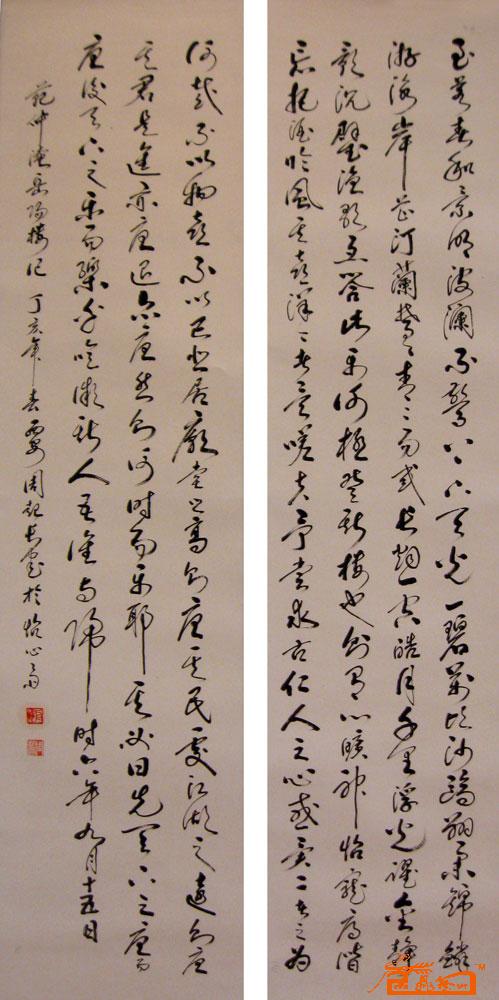 至若春和景明波瀾不驚上下天光一碧萬頃沙鷗翔集錦鱗
游泳岸芷汀蘭郁々青々而或長煙一空皓月千里浮光躍金靜
影沉璧漁歌互答此樂何極登斯樓也則有心曠神怡寵辱偕
忘把酒臨風其喜洋々者矣嗟夫予嘗求古仁人之心或異二者之為
何哉不以物喜不以己悲居廟堂之高則憂其民處江湖之遠則憂
其君是進亦憂退亦憂然則何時而樂耶其必曰先天下之憂而
憂後天下之樂而樂乎噫微斯人吾誰與歸時六年九月十五日
范仲淹岳陽樓記 丁亥年春 周 於怡心齋